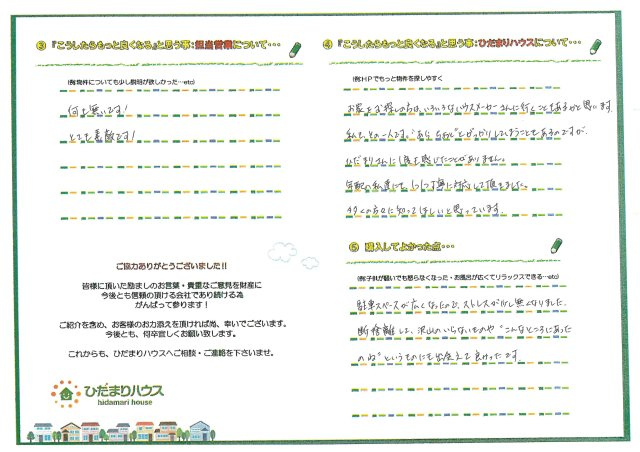 ③『こうしたらもっと良くなる』と思う事:担当営業について・・・
(例:物件についてもう少し説明が欲しかった…etc)
何も無いです!
とても素敵です!
ご協力ありがとうございました!!
皆様に頂いた励ましのお言葉・貴重なご意見を財産に
今後とも信頼の頂ける会社であり続ける為
がんばって参ります!
ご紹介を含め、お客様のお力添えを頂ければ尚、幸いでございます。
今後とも、何卒宜しくお願い致します。
これからも、ひだまりハウスへご相談・ご連絡を下さいませ。
ひだまりハウス
hidamari house
④『こうしたらもっと良くなる』と思う事:ひだまりハウスについて・・・
(例:HPでもっと物件を探しやすく
お家をお探しの方は、いろいろなハウスメーカーさんに行くこともあるかと思います。
私も、その一人です。"あら
がっかりしてしまうこともあるのですが、
ひだまりさんに
を感じたことがありません。
年配の私達にも、
丁寧に対応して頂きました。
多くの方々に知ってほしいと思っています。
⑤ 購入してよかった点・・・
(例:子供が騒いでも怒らなくなった・お風呂が広くてリラックスできる…etc)
駐車スペースが広くなったので、ストレスが少し無くなりました。
断捨離して、沢山のいらないものや"こんなところにあった
のね"というものにも出会えて良かったです